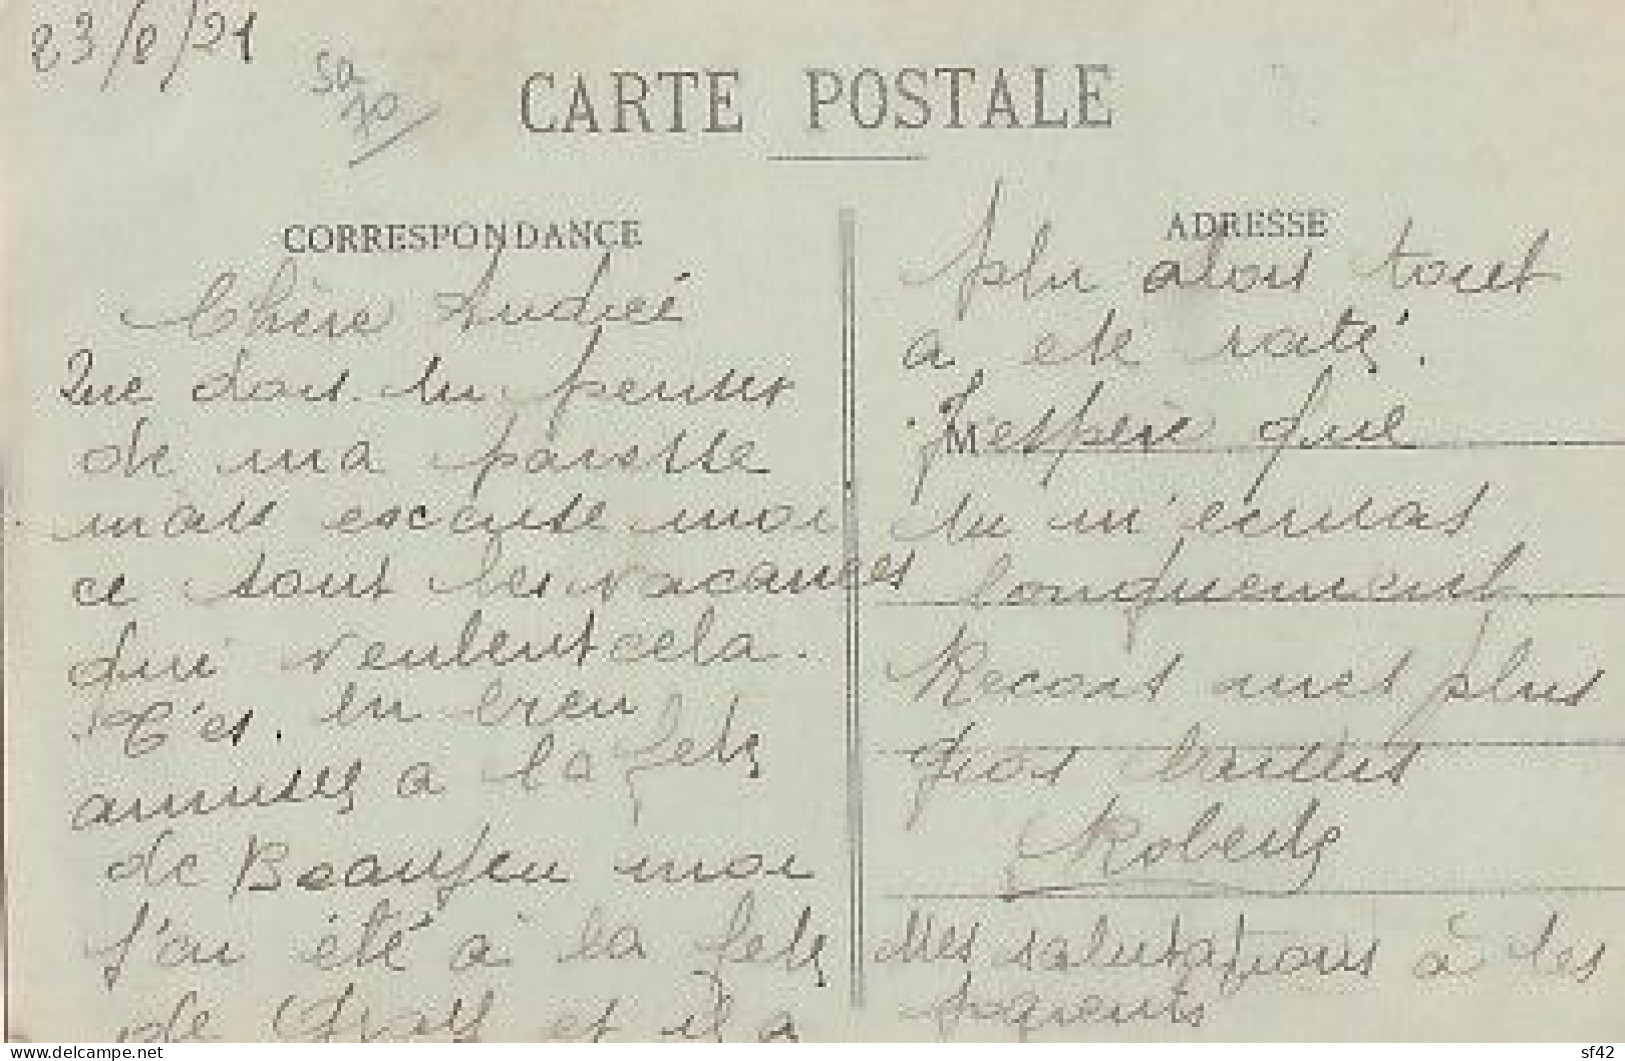 23/8/21
50
70
CARTE POSTALE
CORRESPONDANCE
Chère Andrée
Que dois tu penser
de ma paresse
mais excuse moi
ce sont les vacances
qui veulent cela.
T'es bien
amusée a la fete
de Beaujeu moi
j'ai été à la fete
de et il a
ADRESSE
plu alors tout
a ete raté.
M
J'espère que
tu m'ecriras
longuement
Recois mes plus
gros baisers
Roberte
Mes salutations à tes
parents
www.delcampe.net
sf42